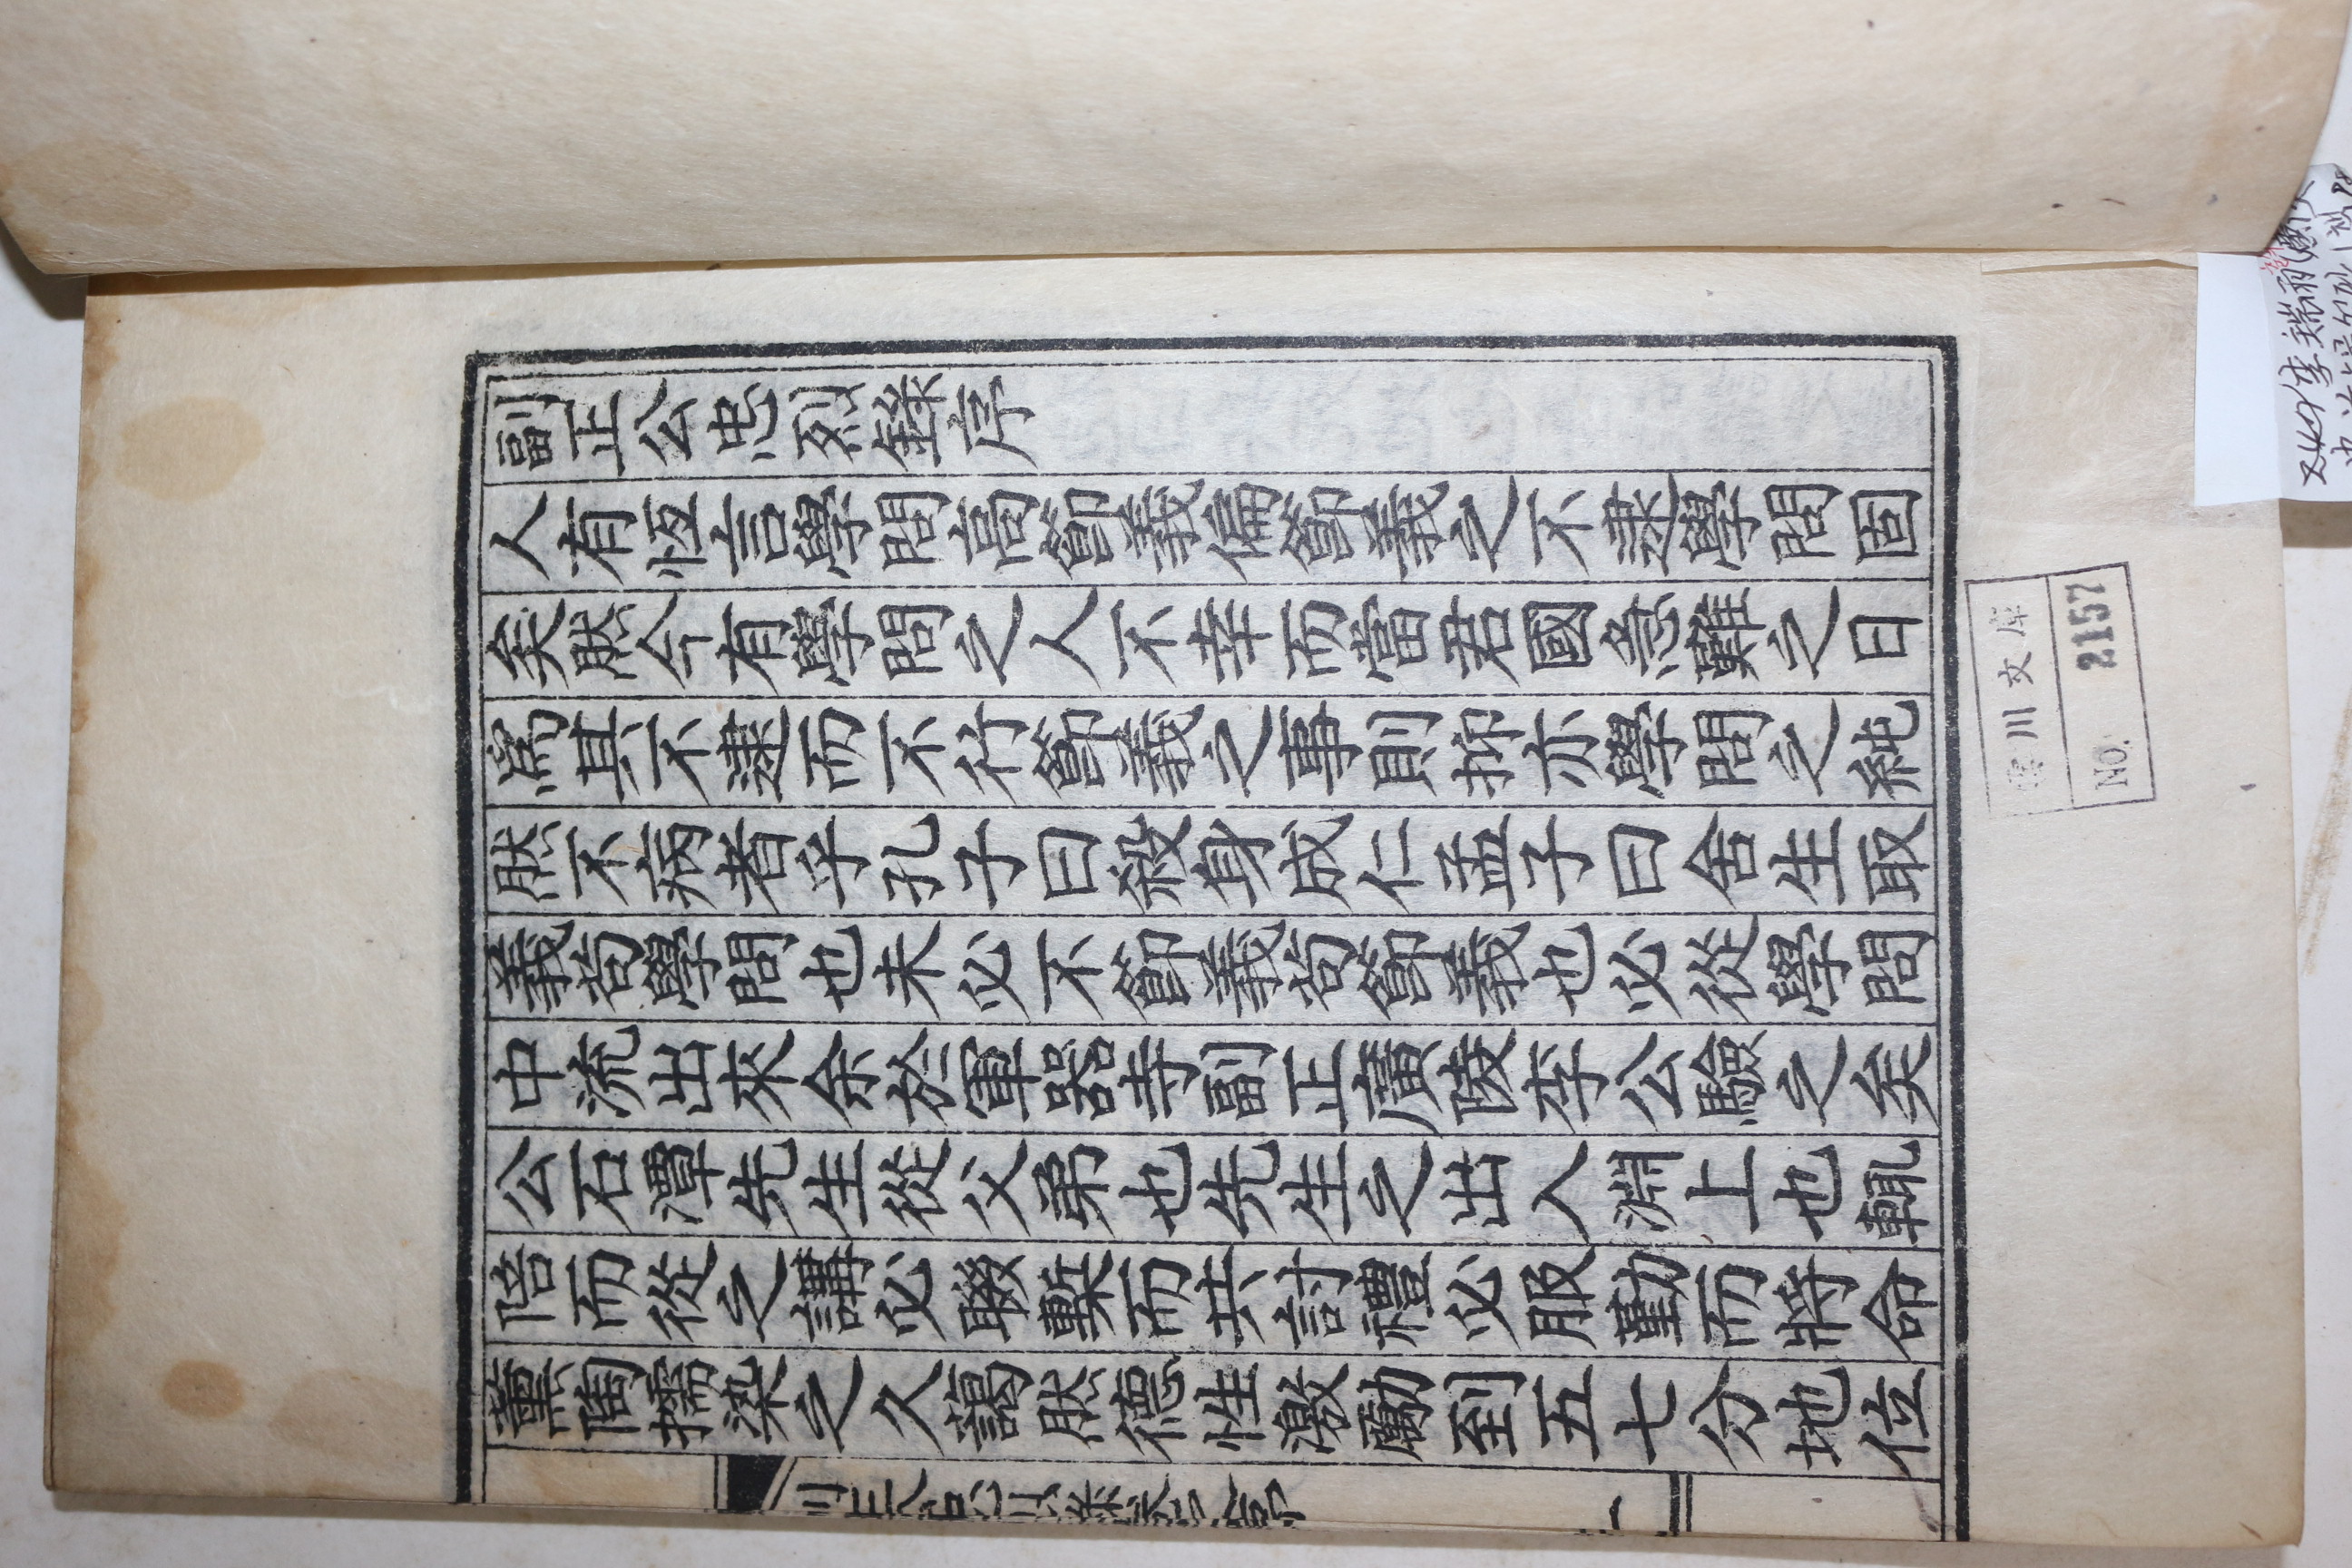 副正公忠烈錄序
人有恆言學問高節義偏節義之不逮學問固
矣然今有學問之人不幸而當君國急難之日
爲其不逮而不行節義之事則抑亦學問之純
然不病者乎孔子曰殺身成仁孟子曰舍生取
義苟學問也未必不節義苟節義也必從學問
中流出來余於軍器寺副正廣陵李公驗之矣
公石潭先生從父弟也先生之出入淵上也輒
陪而從之講必聯槧而共討禮必服勤而將命
薰陶擩染之久藹然德性激勵到五七分地位
川文庫
No. 2157